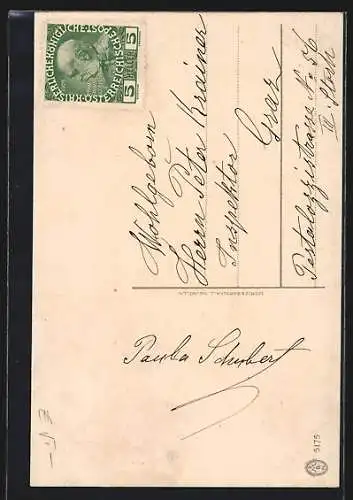 KAISERLICHE KÖNIGLICHE ÖSTERREICHISCHE POST
5 HELLER 5
Wohlgeborn
Herrn Peter Krainer
Inspektor
Graz
Pestalozzistrasse No 56
III. Stock
Paula Schubert
5175